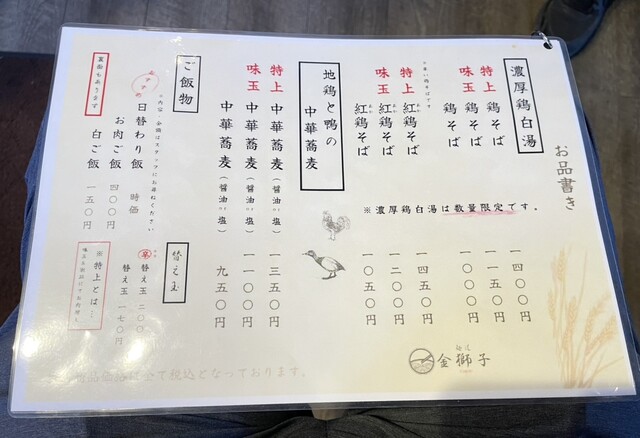 お品書き
濃厚鶏白湯
特上 鶏そば 一四〇〇円
味玉 鶏そば 一一五〇円
鶏そば 一〇〇〇円
※濃厚鶏白湯は数量限定です。
※辛い鶏そばです
特上 紅鶏そば 一四五〇円
味玉 紅鶏そば 一二〇〇円
紅鶏そば 一〇五〇円
地鶏と鴨の
中華蕎麦
特上 中華蕎麦(醤油or塩) 一三五〇円
味玉 中華蕎麦(醤油or塩) 一一〇〇円
中華蕎麦(醤油or塩) 九五〇円
ご飯物
※内容・金額はスタッフにお尋ねください
おすすめ
日替わり飯 時価
お肉ご飯 四〇〇円
白ご飯 一五〇円
替え玉
替え玉 二〇〇
替え玉 一七〇円
※特上とは…
金獅子
商品価格は全て税込となっております。